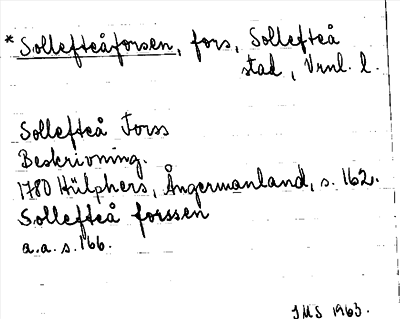 * Sollefteåforsen, fors, Sollefteå
stad, Vrnl. l.
Sollefteå Forss
Beskrivning.
1780 Hülphers, Ångermanland, s. 162.
Sollefteå forssen
a.a. s. 166.
IMS 1963.